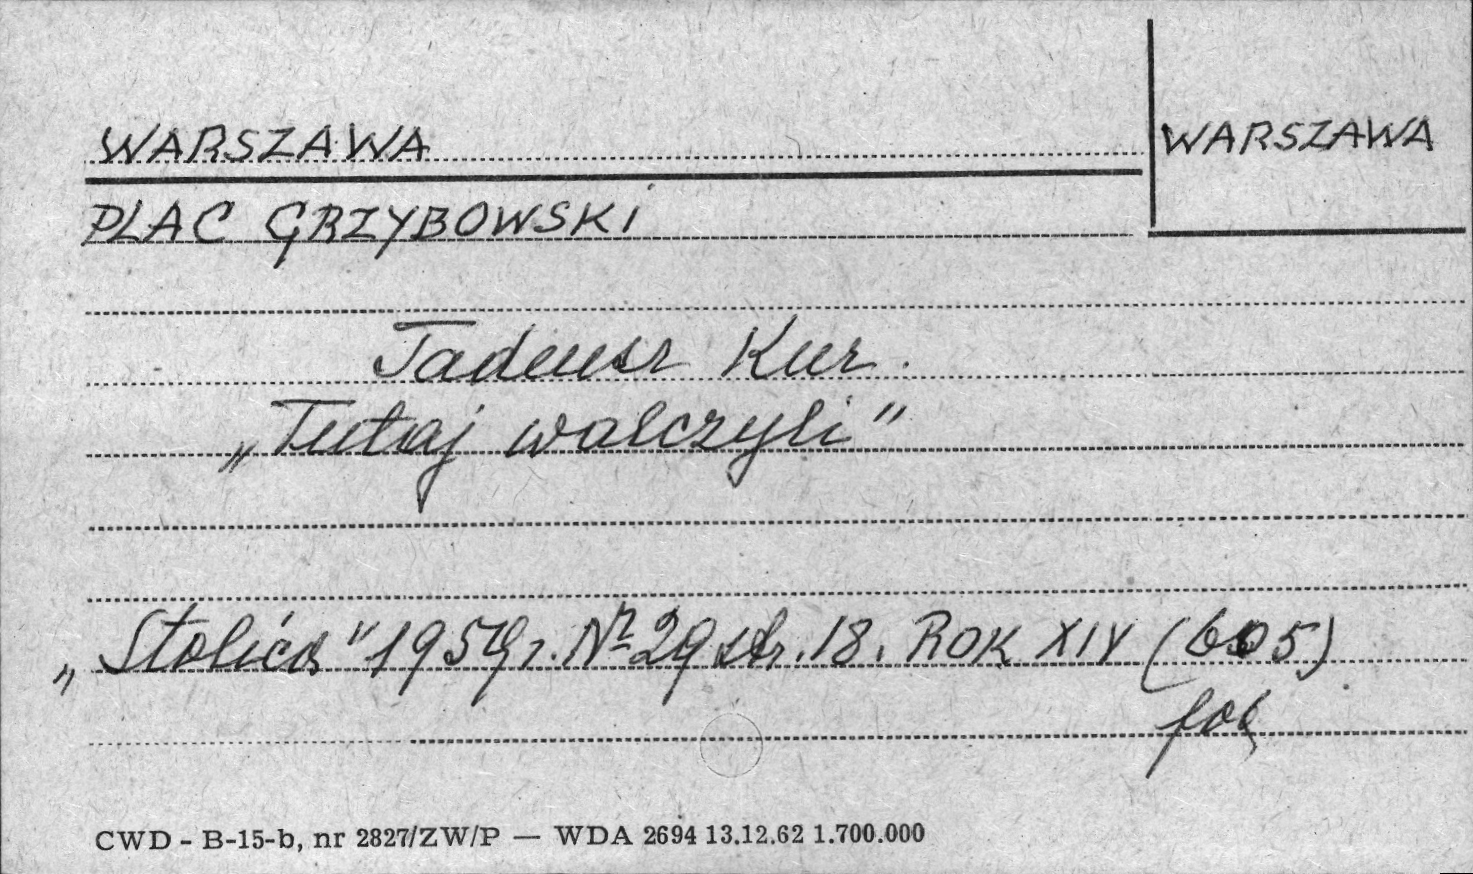 WARSZAWA
WARSZAWA
PLAC GRZYBOWSKI
Tadeusz Kur.
„Tutaj walczyli”
„Stolica” 1959 r. Nr 29 str. 18. ROK XIV (605)
CWD - B-15-b, nr 2827/ZW/P — WDA 2694 13.12.62 1.700.000